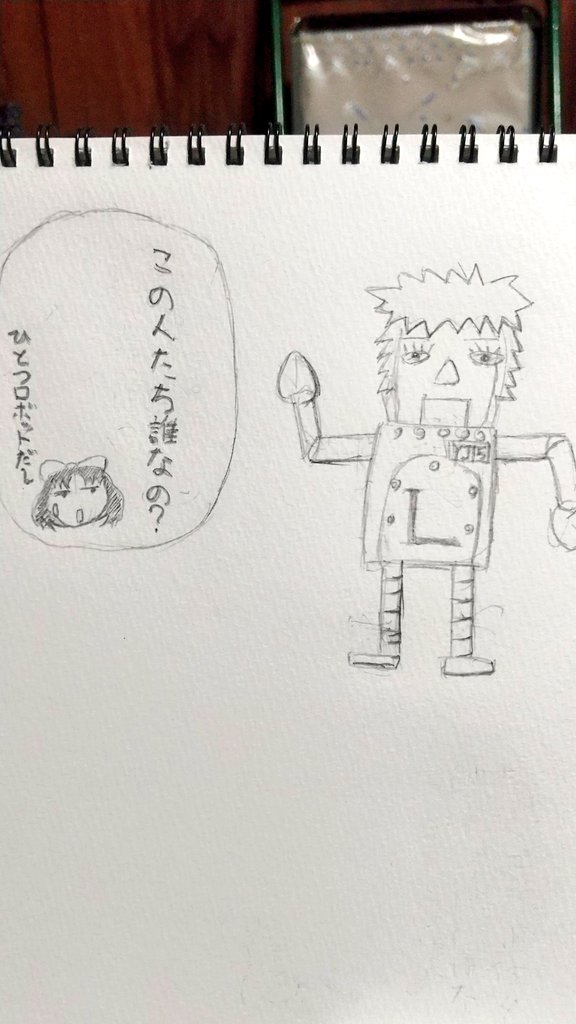 この人たち誰なの?
ひとつロボットだし
L